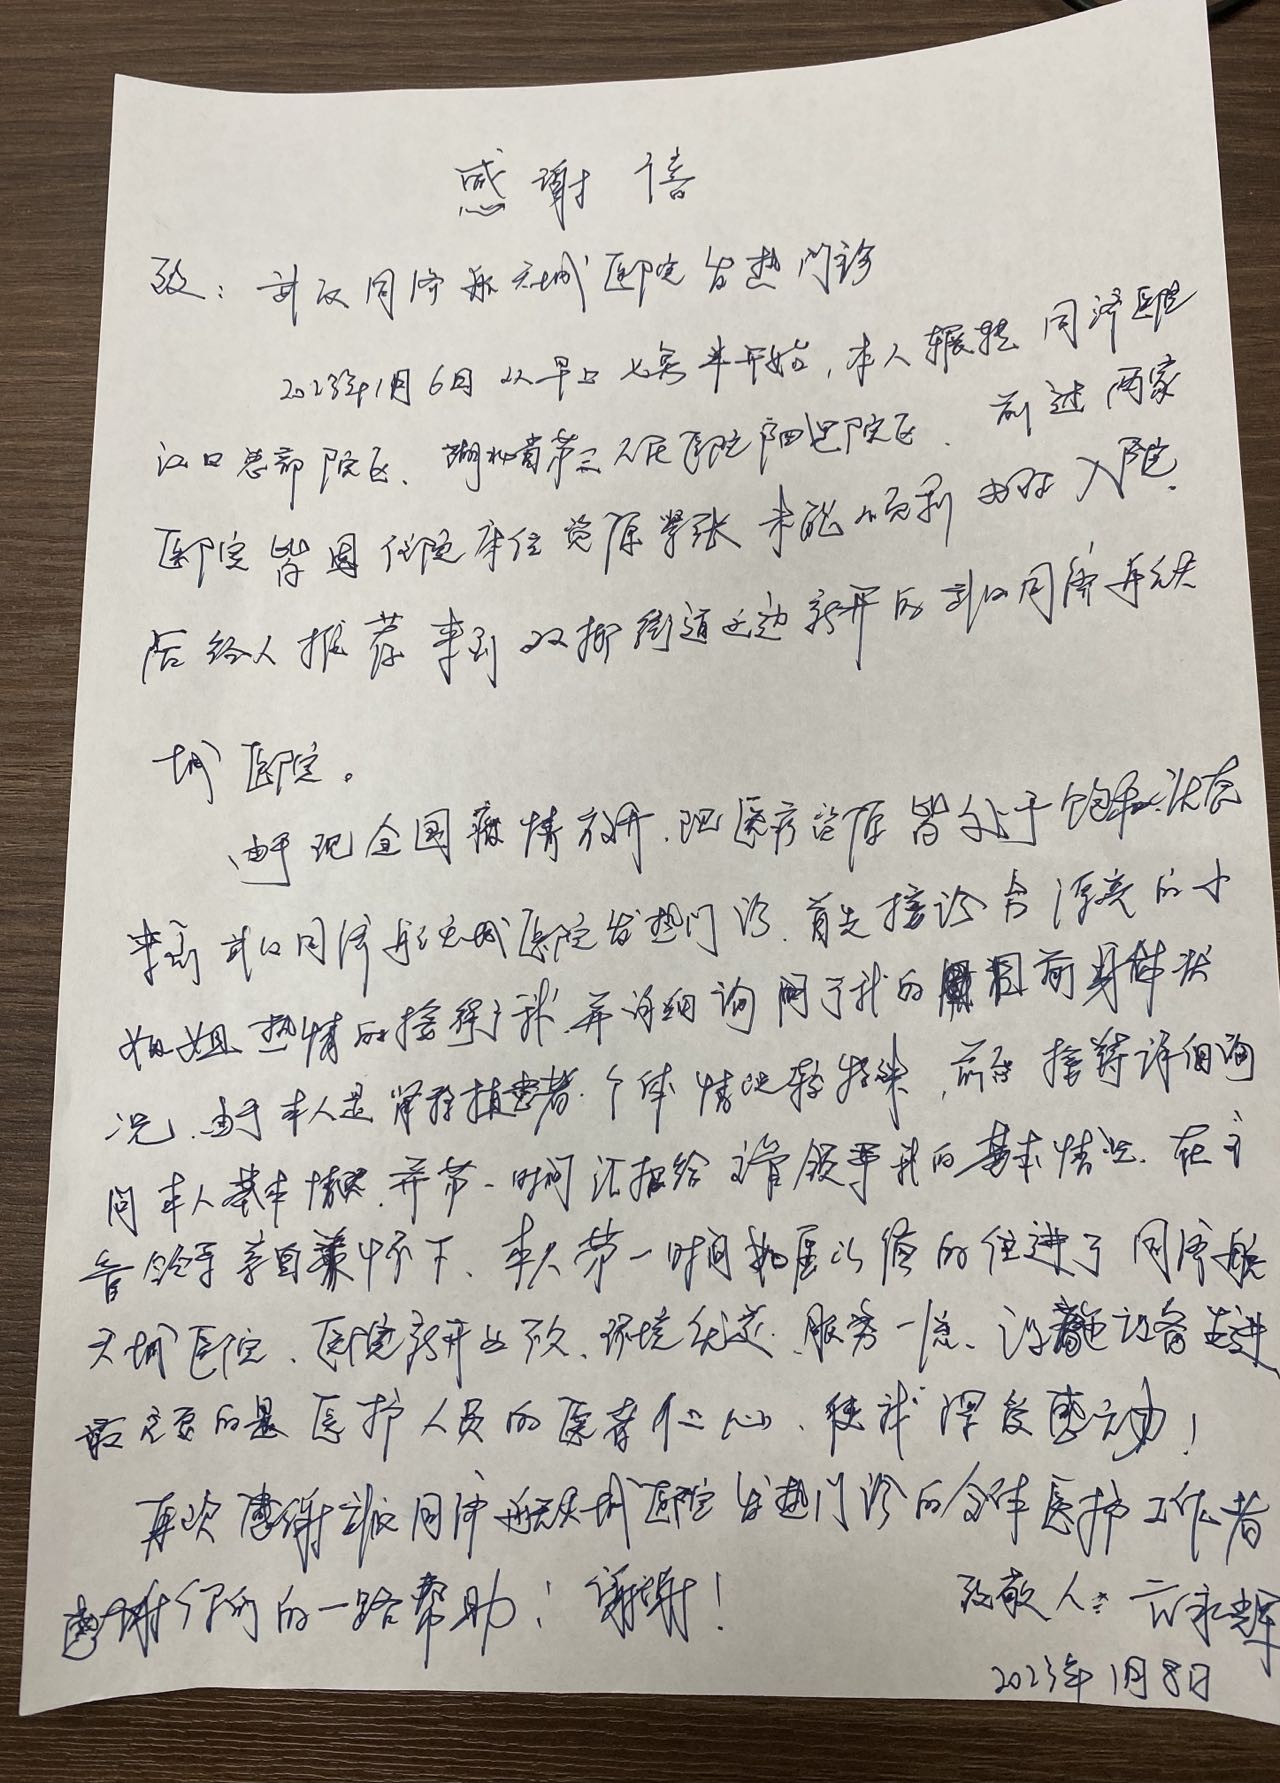 感谢信
致：武汉同济航天城医院发热门诊
2023年1月6日从早上七点半开始，本人辗转同济医院
汉口总部院区、湖北省第三人民医院阳逻院区、前述两家
医院皆因住院床位资源紧张未能顺利办理入院。
后经人推荐来到双柳街道这边新开的武汉同济航天
城医院。
由于现全国疫情放开，现医疗资源皆处于饱和状态
来到武汉同济航天城医院发热门诊、首先接诊台漂亮的小
姐姐热情的接待了我并详细询问了我的目前身体状
况、由于本人是肾移植患者、个体情况较特殊，前台接待详细询
问本人基本情况、并第一时间汇报给主管领导我的基本情况、在主
管领导亲自关怀下、本人第一时间如愿以偿的住进了同济航
天城医院、医院新开业致、环境优美、服务一流、设施设备先进
最主要的是医护人员的医者仁心、使我深受感动！
再次感谢武汉同济航天城医院发热门诊的全体医护工作者
感谢你们的一路帮助！谢谢！
致敬人：永辉
2023年1月8日